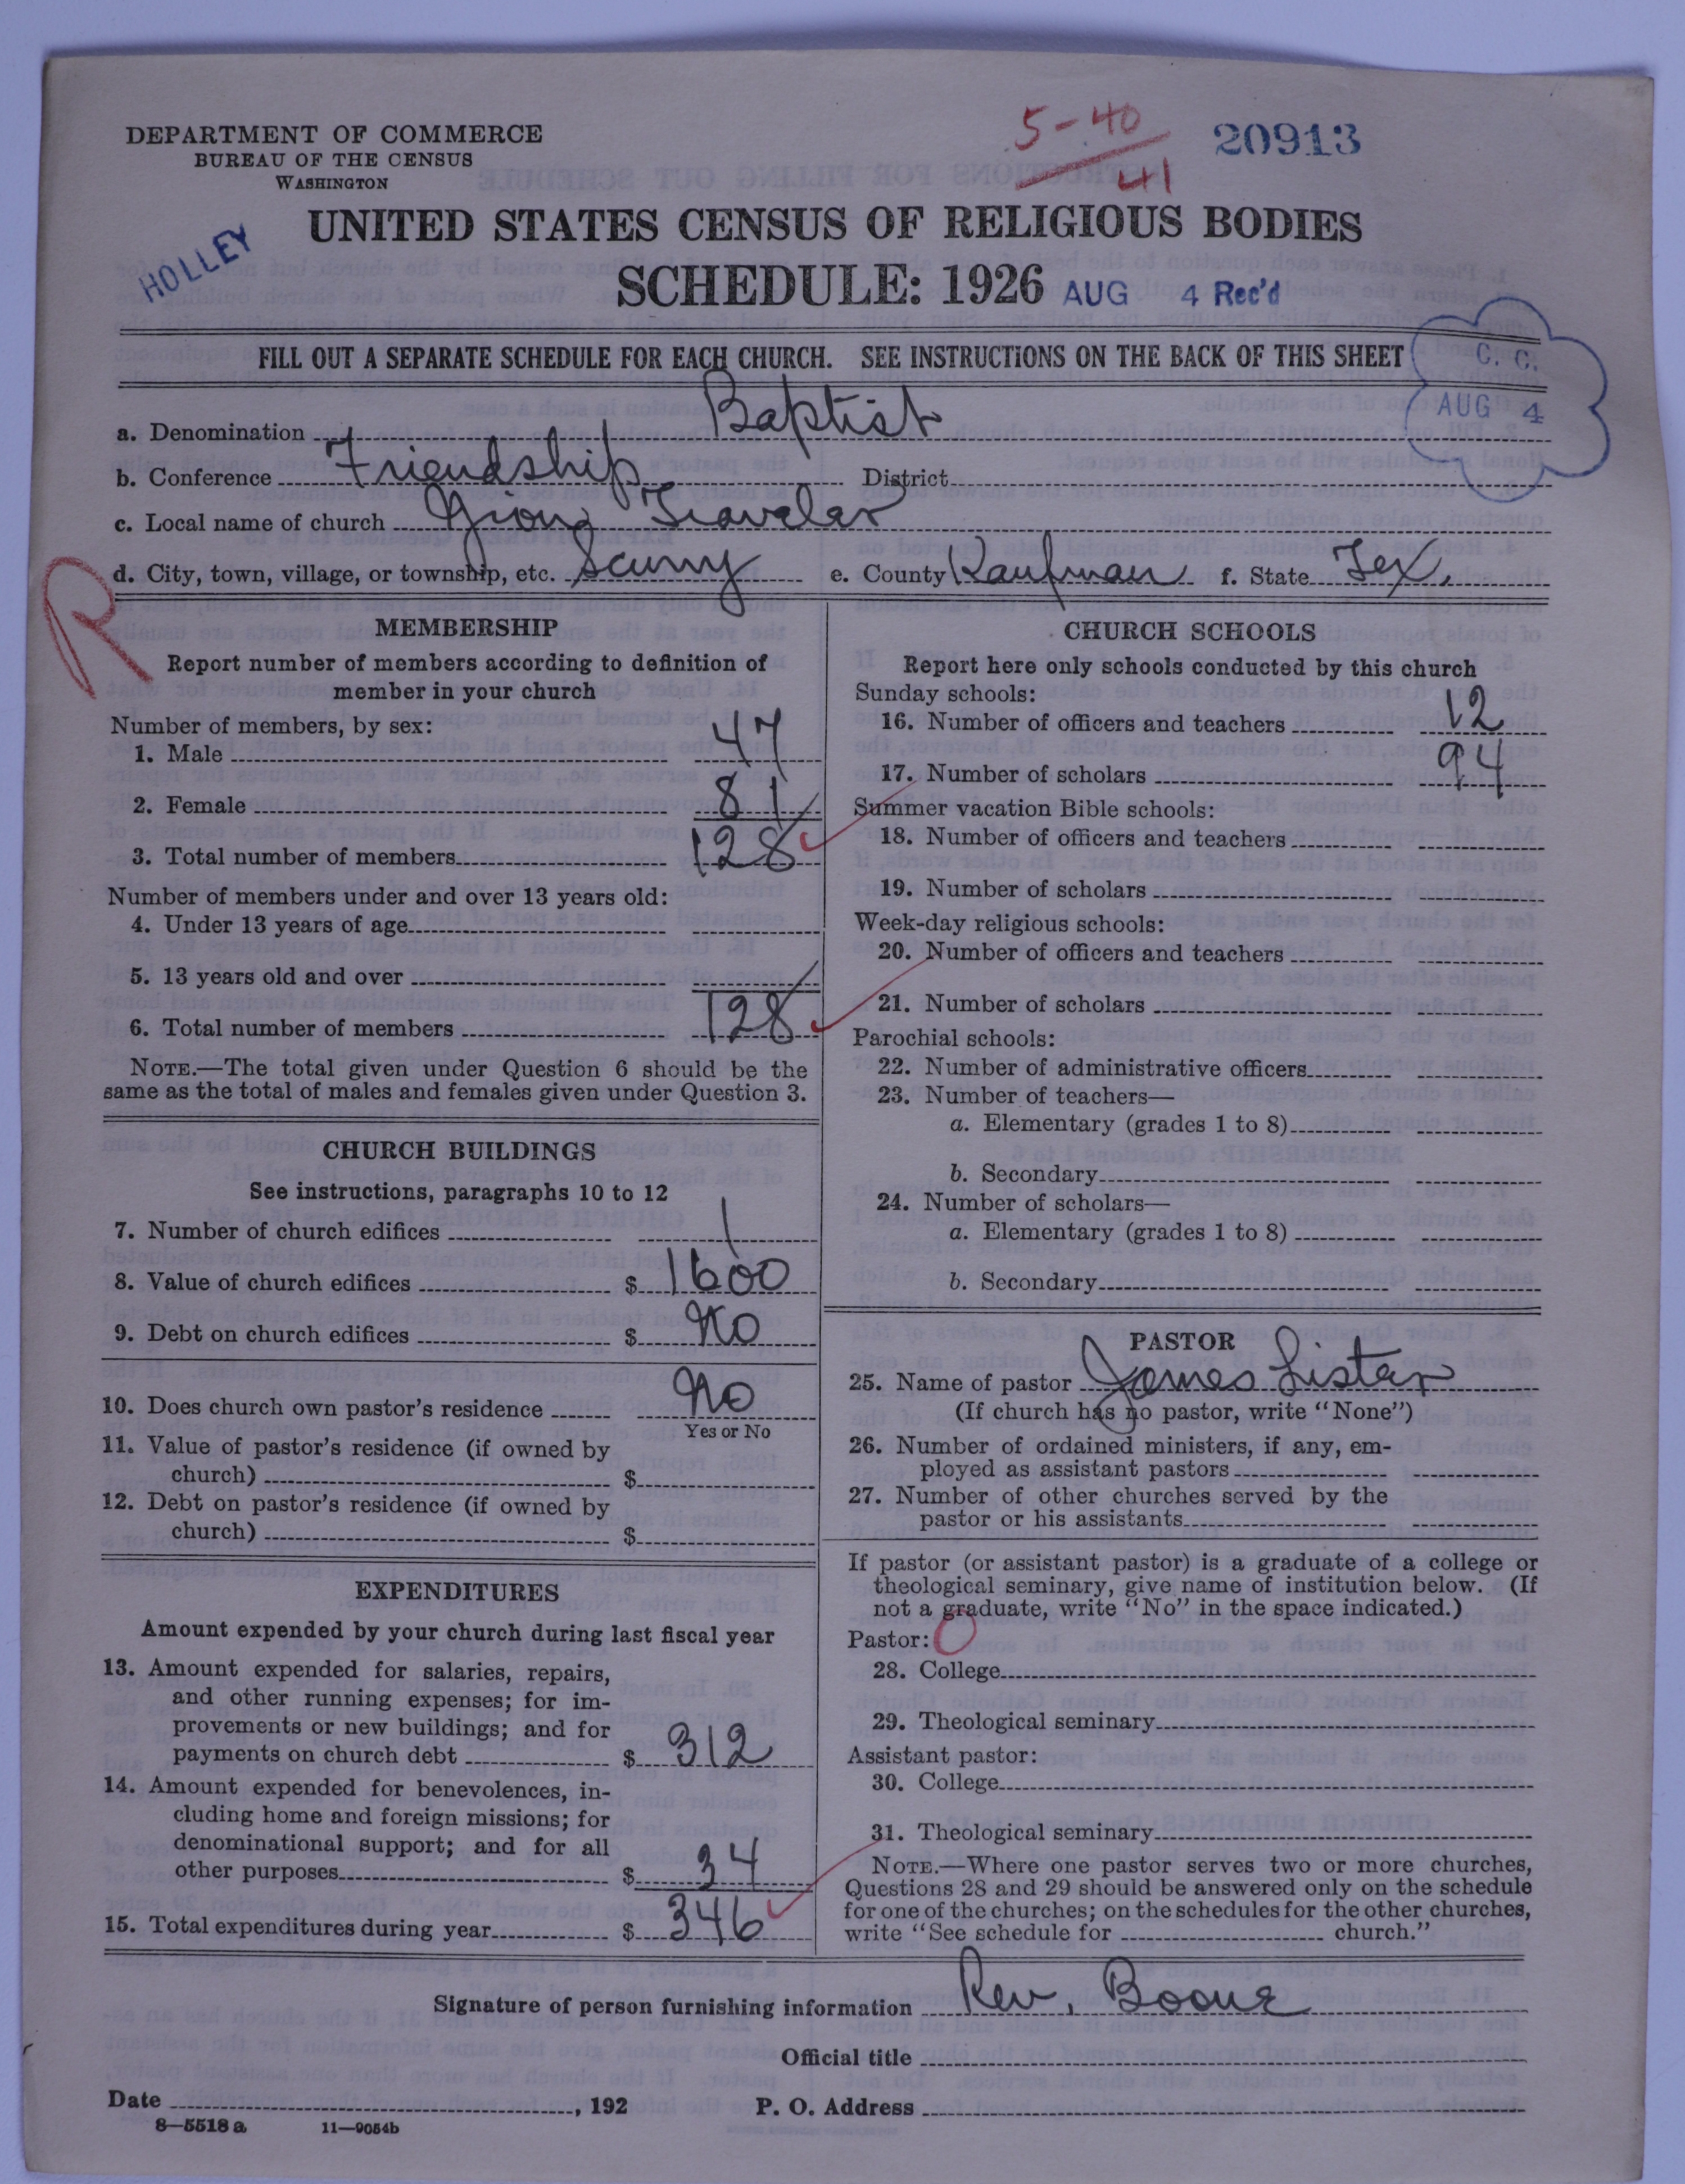 DEPARTMENT OF COMMERCE
BUREAU OF THE CENSUS
WASHINGTON
5-40
41
20913
HOLLEY
UNITED STATES CENSUS OF RELIGIOUS BODIES
SCHEDULE: 1926
AUG 4 Rec'd
FILL OUT A SEPARATE SCHEDULE FOR EACH CHURCH. SEE INSTRUCTIONS ON THE BACK OF THIS SHEET
C. C.
AUG 4
a. Denomination Baptist
b. Conference Friendship District
c. Local name of church Travelar
d. City, town, village, or township, etc. Scurry e. County Kaufman f. State Tex.
R
MEMBERSHIP
Report number of members according to definition of
member in your church
Number of members, by sex:
1. Male 47
2. Female 81
3. Total number of members 128
Number of members under and over 13 years old:
4. Under 13 years of age
5. 13 years old and over
6. Total number of members 128
NOTE.—The total given under Question 6 should be the
same as the total of males and females given under Question 3.
CHURCH BUILDINGS
See instructions, paragraphs 10 to 12
7. Number of church edifices 1
8. Value of church edifices $ 1600
9. Debt on church edifices $ No
10. Does church own pastor's residence No
Yes or No
11. Value of pastor's residence (if owned by
church) $
12. Debt on pastor's residence (if owned by
church) $
EXPENDITURES
Amount expended by your church during last fiscal year
13. Amount expended for salaries, repairs,
and other running expenses; for im-
provements or new buildings; and for
payments on church debt $ 312
14. Amount expended for benevolences, in-
cluding home and foreign missions; for
denominational support; and for all
other purposes $ 34
15. Total expenditures during year $ 346
CHURCH SCHOOLS
Report here only schools conducted by this church
Sunday schools:
16. Number of officers and teachers 12
17. Number of scholars 94
Summer vacation Bible schools:
18. Number of officers and teachers
19. Number of scholars
Week-day religious schools:
20. Number of officers and teachers
21. Number of scholars
Parochial schools:
22. Number of administrative officers
23. Number of teachers—
a. Elementary (grades 1 to 8)
b. Secondary
24. Number of scholars—
a. Elementary (grades 1 to 8)
b. Secondary
PASTOR
25. Name of pastor James Lister
(If church has no pastor, write "None")
26. Number of ordained ministers, if any, em-
ployed as assistant pastors
27. Number of other churches served by the
pastor or his assistants
If pastor (or assistant pastor) is a graduate of a college or
theological seminary, give name of institution below. (If
not a graduate, write "No" in the space indicated.)
Pastor: O
28. College
29. Theological seminary
Assistant pastor:
30. College
31. Theological seminary
NOTE.—Where one pastor serves two or more churches,
Questions 28 and 29 should be answered only on the schedule
for one of the churches; on the schedules for the other churches,
write "See schedule for church."
Signature of person furnishing information Rev. Boone
Official title
Date , 192 P. O. Address
8—5518 a 11—9054b